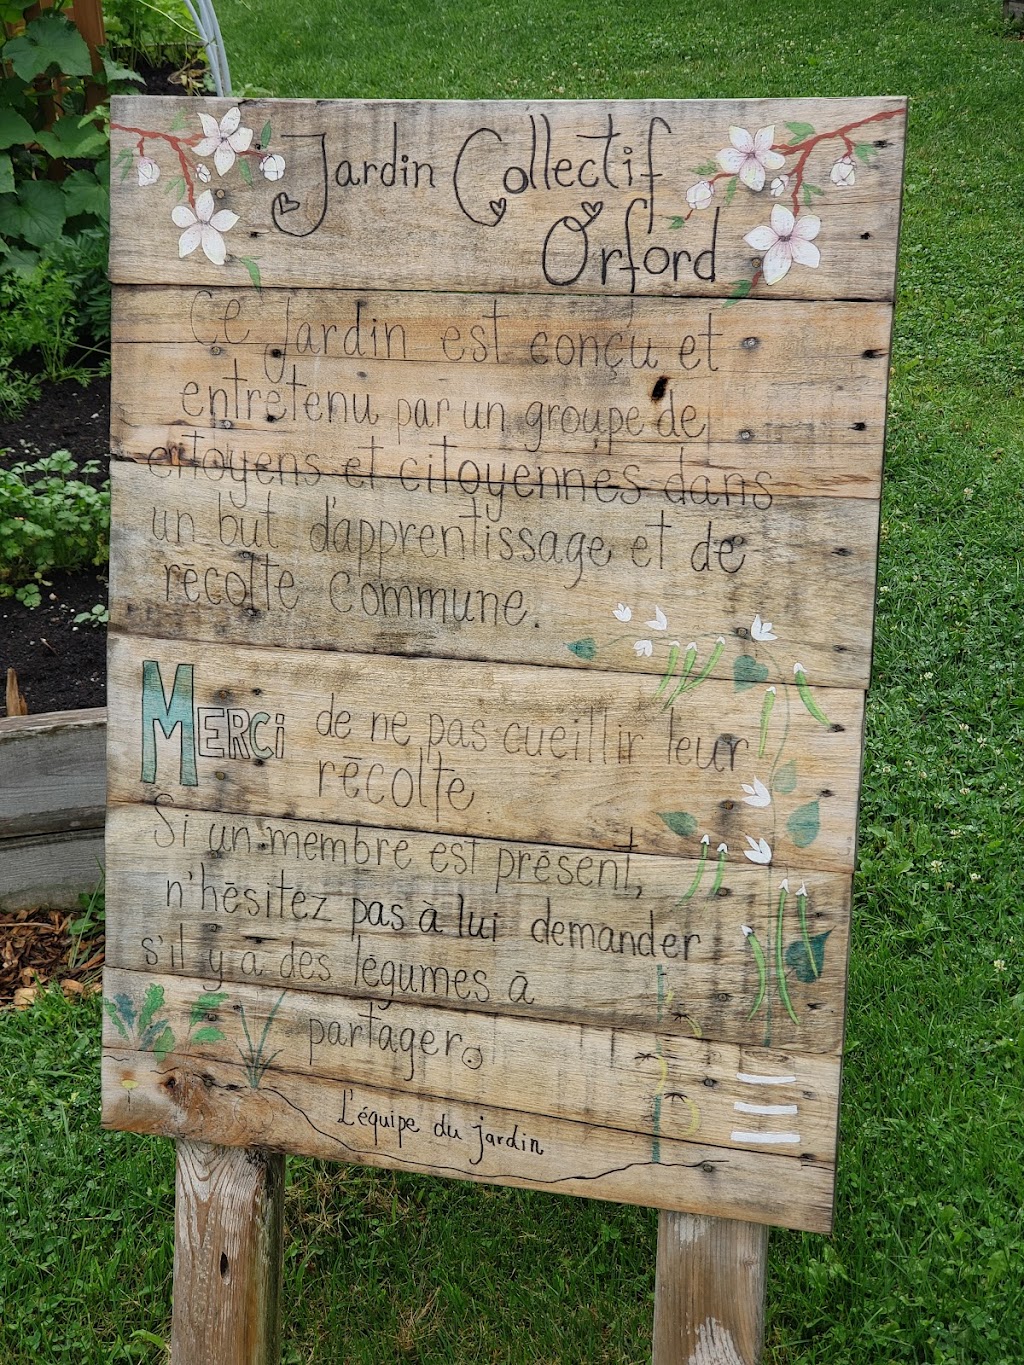 Jardin Collectif
Orford
Ce jardin est conçu et
entretenu par un groupe de
citoyens et citoyennes dans
un but d'apprentissage et de
récolte commune.
MERCi de ne pas cueillir leur
récolte
Si un membre est présent,
n'hésitez pas à lui demander
s'il y a des légumes à
partager.
L'équipe du jardin